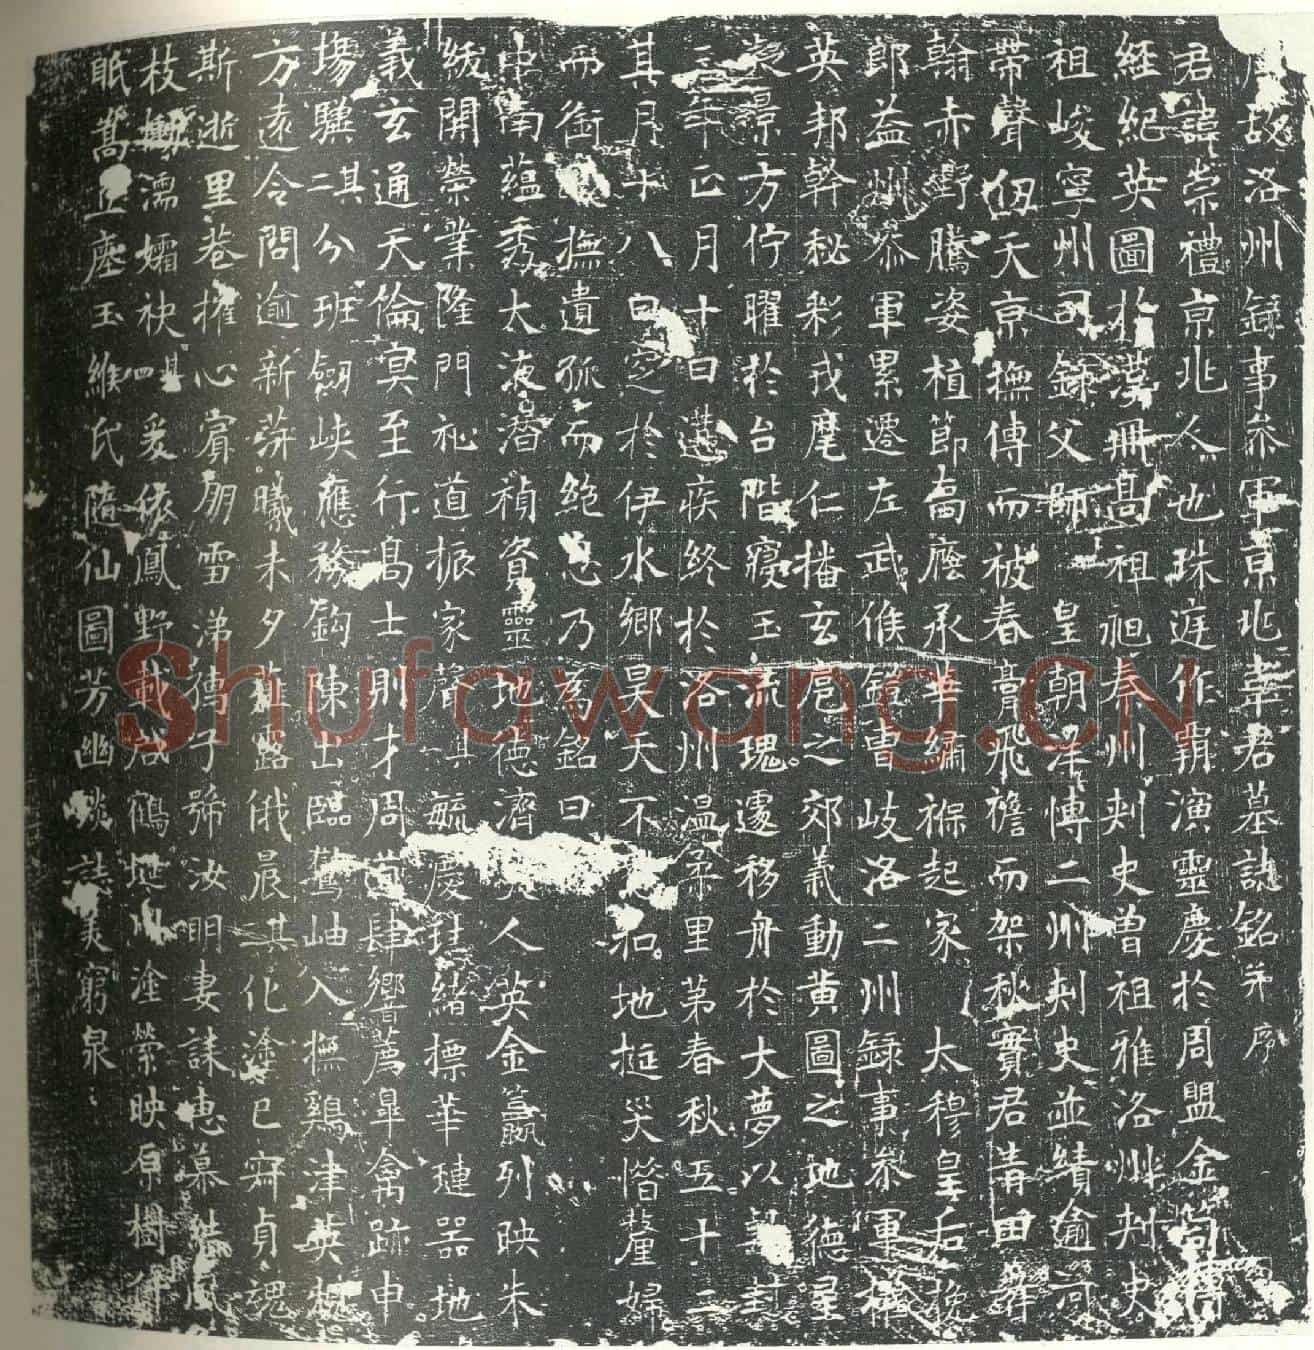 故洛州錄事叅軍京兆韋君墓誌銘并序
君諱崇禮京兆人也珠庭作霸演靈慶於周盟金笥
經紀英圖於漢冊高祖 秦州刾史曾祖雅洛州刾史
祖峻寧州司錄父師 皇朝澤愽二州刾史並績逾河
帶聲 天京撫傳而被春膏飛襜而架秋實君 田
翰赤野騰姿植節 承華繡褓起家 太穆皇后挽
郎益州叅軍累遷左武候 曹岐洛二州錄事叅軍
英邦幹秘彩戎麾仁播玄扈之郊義動黄圖之地德星
景方佇曜於台階寢玉流瑰遽移舟於大夢以 封
三年正月十日遘疾終於洛州溫柔里第春秋五十二
其月十八日窆於伊水鄉昊天不 地挻災 嫠婦
而銜 撫遺孤而絶 乃爲銘曰
中南蘊秀太液潛禎資靈地德濟 人英金籯列映朱
紱開榮業隆門祉道振家聲其一毓慶 緒標華璉器地
義玄通天倫㝠至行高士則才周 肆響薦臯禽跡申
塲驥其二分班劒峽應務鈎陳出臨鶩岫入撫鷄津英
方遠令問逾新 曦未夕 露俄晨其三化塗已 貞魂
斯逝里巷摧心賓朋雪涕 子 汝明妻誄惠 風
枝 濡孀袂其四爰 鳳野載 鶴地 塗縈映原樹
眂嵩丘塵玉緱氏隨仙圖芳幽 誌美窮泉
Shufawang.CN